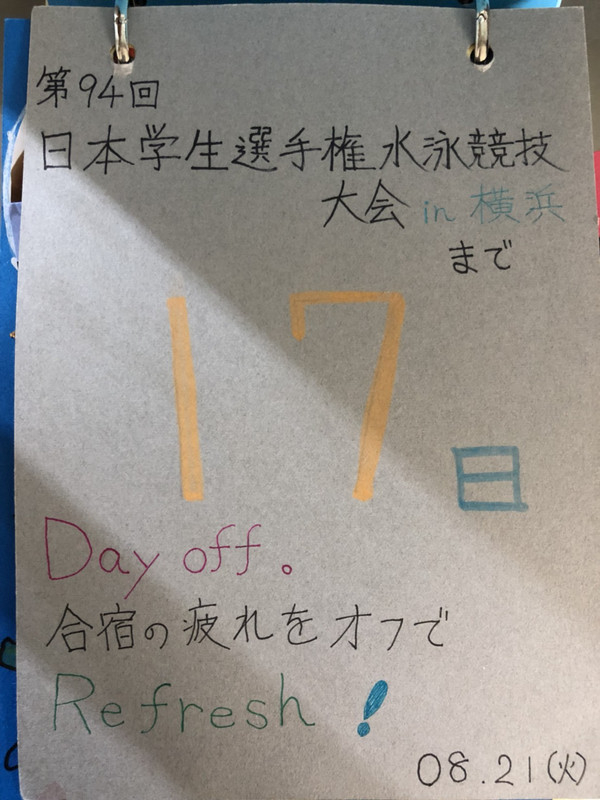 第94回
日本学生選手権水泳競技
大会 in 横浜
まで
17日
Day off。
合宿の疲れをオフで
Refresh!
08.21(火)